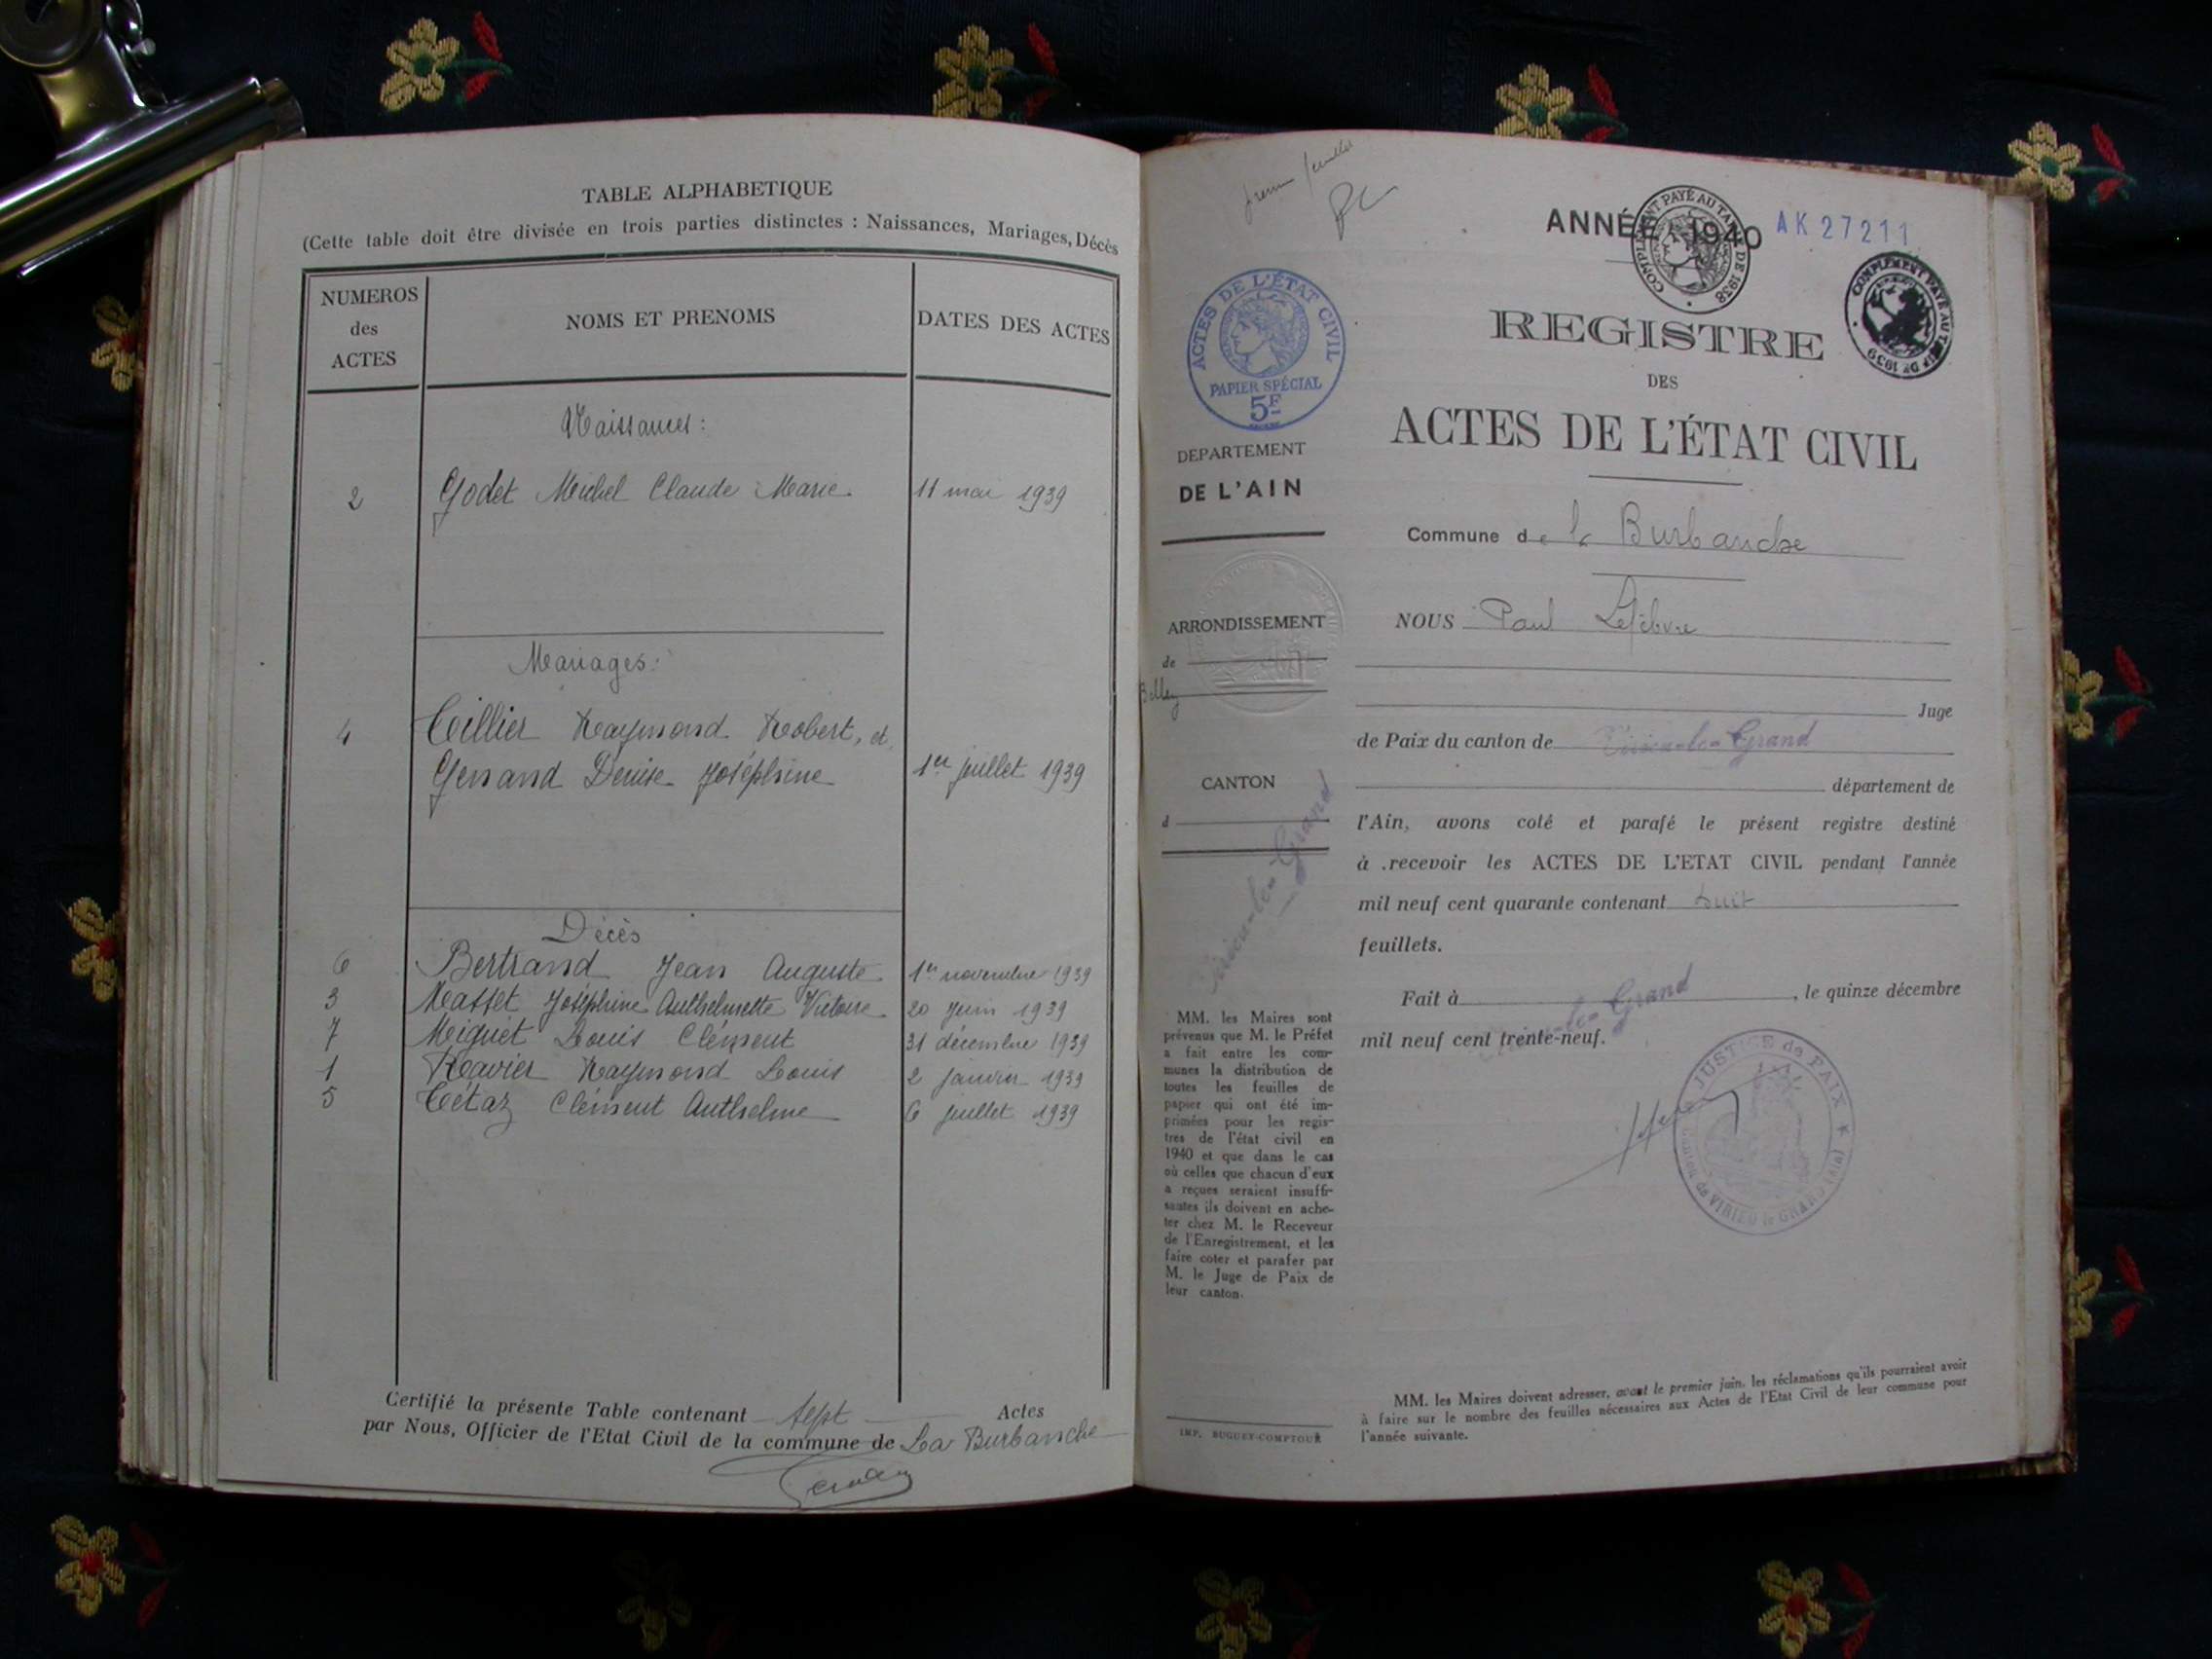 TABLE ALPHABETIQUE
(Cette table doit être divisée en trois parties distinctes : Naissances, Mariages, Décès
NUMEROS
des
ACTES
NOMS ET PRENOMS
DATES DES ACTES
Naissances :
2 Godet Michel Claude Marie 11 mai 1939
Mariages :
4 Teillier Raymond Robert, et
Denise Joséphine 1er juillet 1939
Décès
6 Bertrand Jean Auguste 1er novembre 1939
3 Masset Joséphine Anthelmette Victoire 20 juin 1939
7 Miguet Louis Clément 31 décembre 1939
1 Ravier Raymond Louis 2 janvier 1939
5 Tétaz Clément Anthelme 6 juillet 1939
Certifié la présente Table contenant sept Actes
par Nous, Officier de l'Etat Civil de la commune de La Burbanche
ANNÉE 1940
AK 27211
COMPLÉMENT PAYÉ AU TARIF DE 1938
COMPLÉMENT PAYÉ AU TARIF DE 1939
ACTES DE L'ÉTAT CIVIL
PAPIER SPÉCIAL
5F
DEPARTEMENT
DE L'AIN
ARRONDISSEMENT
de
Belley
CANTON
d
Virieu-le-Grand
MM. les Maires sont
prévenus que M. le Préfet
a fait entre les com-
munes la distribution de
toutes les feuilles de
papier qui ont été im-
primées pour les regis-
tres de l'état civil en
1940 et que dans le cas
où celles que chacun d'eux
a reçues seraient insuffi-
santes ils doivent en ache-
ter chez M. le Receveur
de l'Enregistrement, et les
faire coter et parafer par
M. le Juge de Paix de
leur canton.
IMP. BUGUET-COMPTOUR
REGISTRE
DES
ACTES DE L'ÉTAT CIVIL
Commune de la Burbanche
NOUS Paul Lefèbvre
Juge
de Paix du canton de Virieu-le-Grand
département de
l'Ain, avons coté et parafé le présent registre destiné
à .recevoir les ACTES DE L'ETAT CIVIL pendant l'année
mil neuf cent quarante contenant huit
feuillets.
Fait à Virieu-le-Grand, le quinze décembre
mil neuf cent trente-neuf.
JUSTICE de PAIX
Canton de VIRIEU le GRAND (Ain)
MM. les Maires doivent adresser, avant le premier juin, les réclamations qu'ils pourraient avoir
à faire sur le nombre des feuilles nécessaires aux Actes de l'Etat Civil de leur commune pour
l'année suivante.